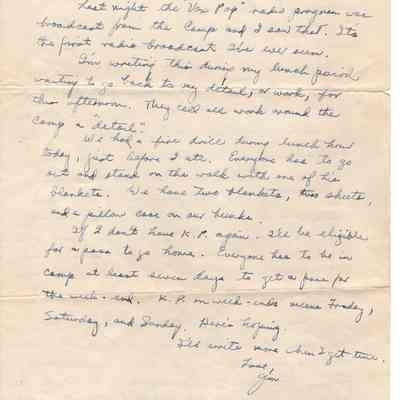 Last night the "Vox Pop" radio program was
broadcast from the Camp and I saw that. Its
the first radio broadcast I've ever seen.
I'm writing this durin my lunch period
waiting to go back to my detail, or work, for
this afternoon. They call all work around the
camp a "detail".
We had a fire drill during lunch hour
today, just before I ate. Everyone has to go
out and stand on the walk with one of his
blankets. We have two blankets, two sheets,
and a pillow case on our bunks.
If I don't have K.P. again. I'll be eligible
for a pass to go home. Everyone has to be in
camp at least seven days to get a pass for
the week-end. K.P. on week-ends means Friday,
Saturday, and Sunday. Here's hoping.
I'll write more when I get time.
Love,
Jim